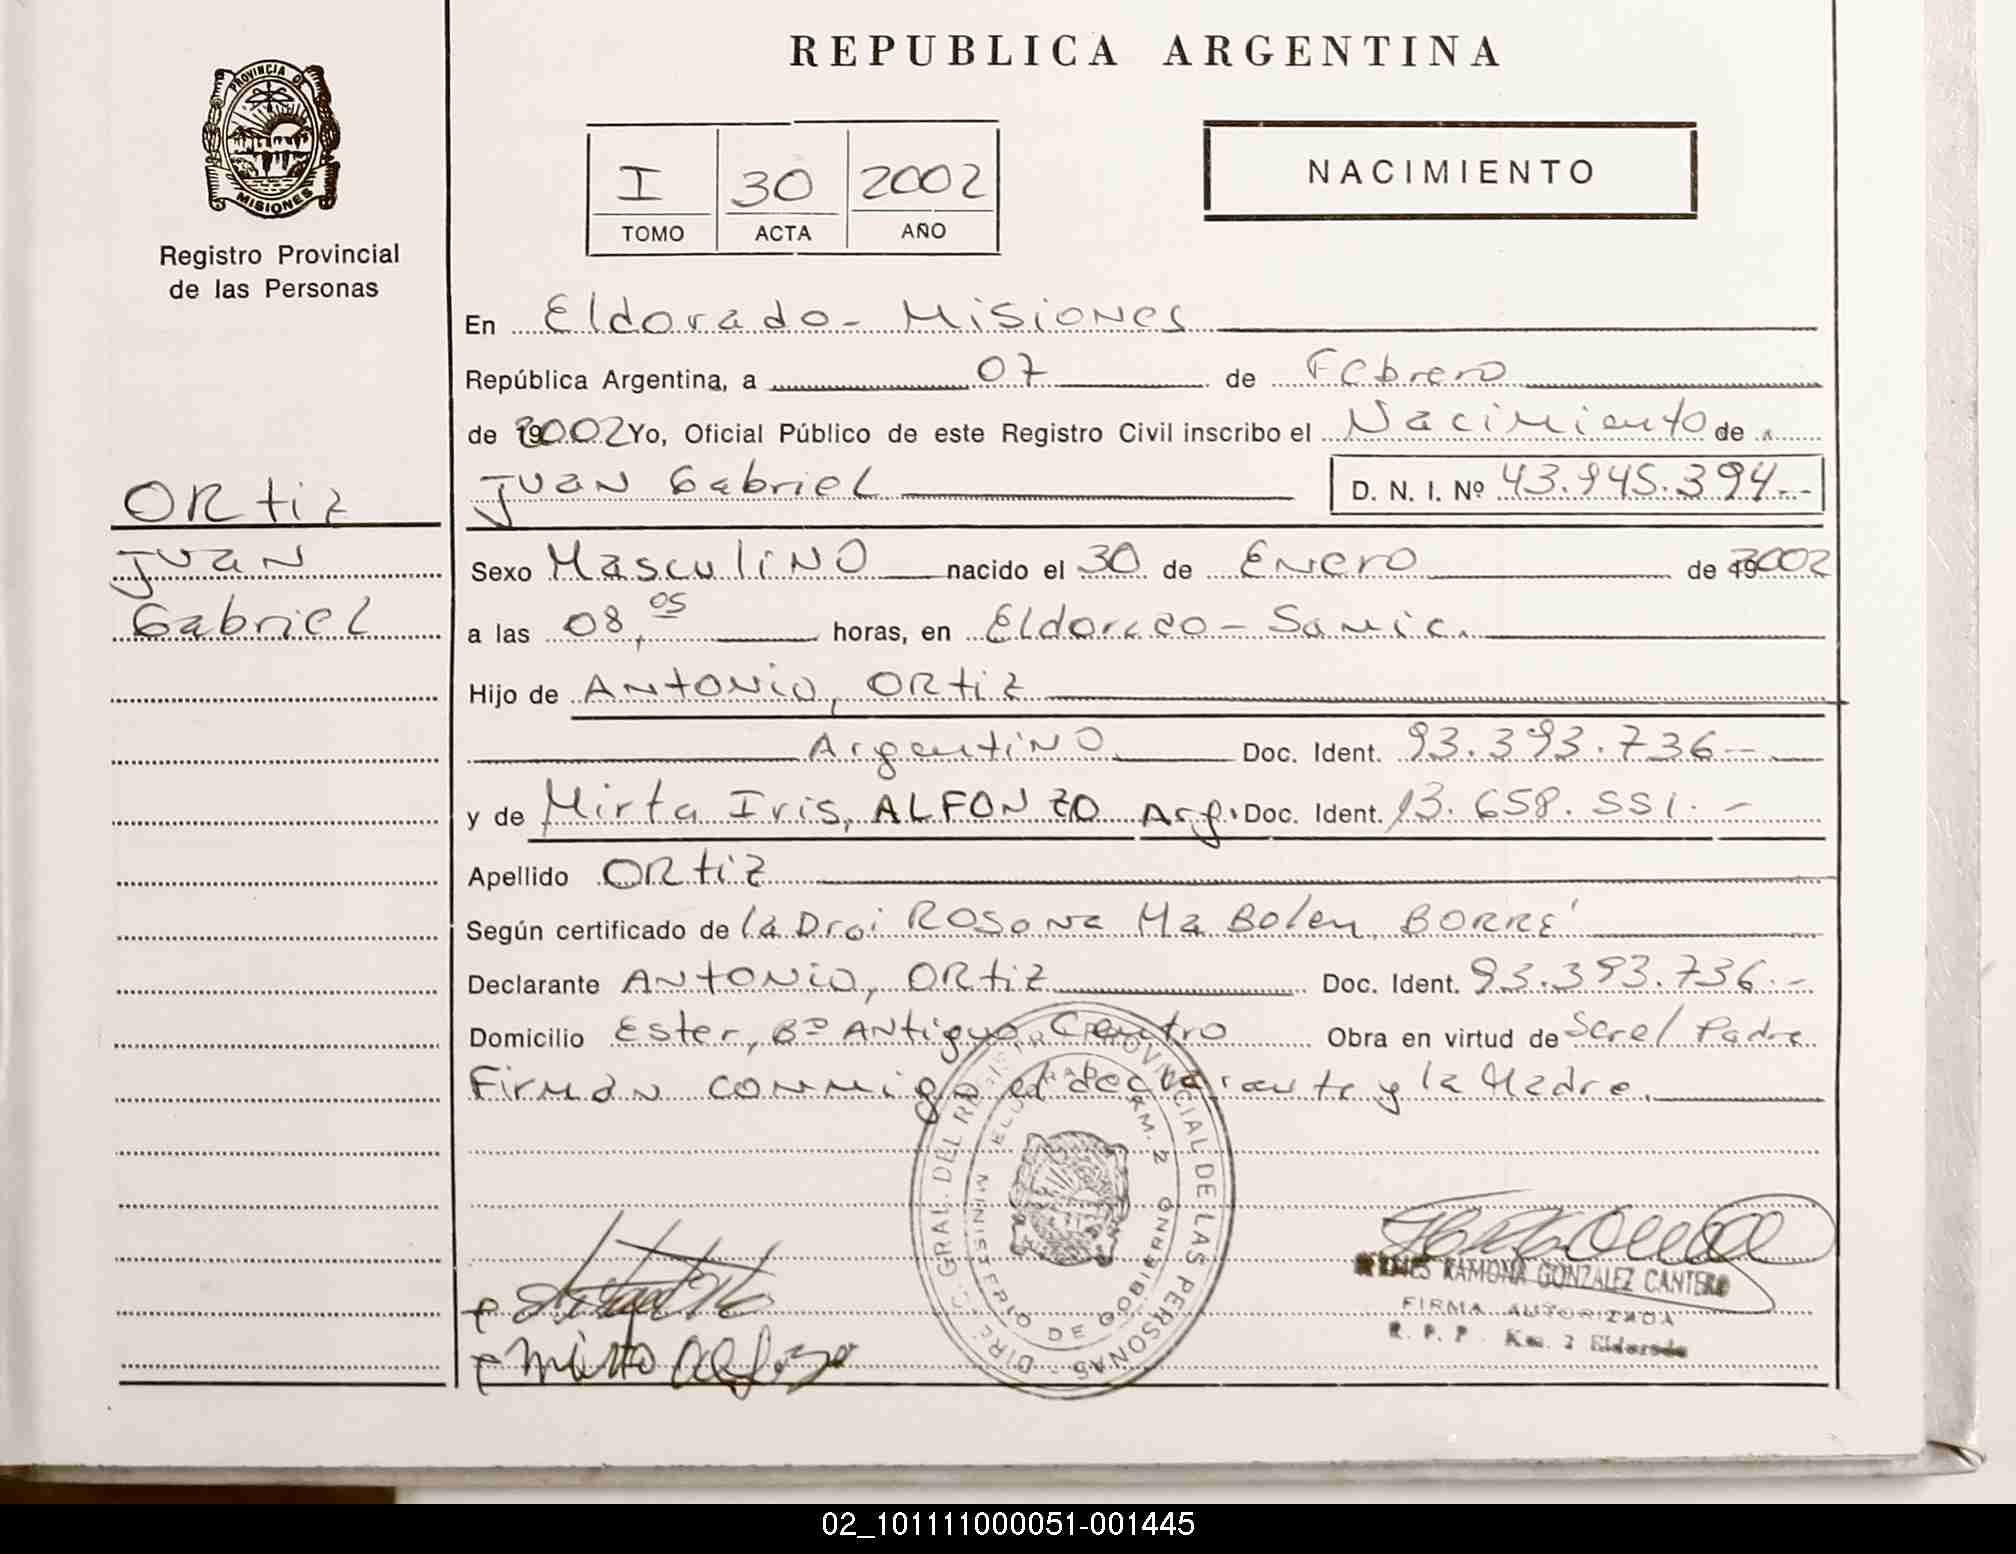 REPUBLICA ARGENTINA
PROVINCIA DE
MISIONES
Registro Provincial
de las Personas
I 30 2002
TOMO ACTA AÑO
NACIMIENTO
En Eldorado - Misiones
República Argentina, a 07 de Febrero
de 2002 Yo, Oficial Público de este Registro Civil inscribo el Nacimiento de
JUAN Gabriel D. N. I. Nº 43.945.394.--
ORtiz
JUAN
Gabriel
Sexo MasculiNO nacido el 30 de Enero de 2002
a las 08,05 horas, en Eldorado - Samic.
Hijo de ANtONio, ORtiz
ArgentiNO Doc. Ident. 93.393.736.-
y de Mirta Iris, ALFONZO Arg. Doc. Ident. 13.658.551.-
Apellido ORtiz
Según certificado de la Dra: ROSaNa Ma Belen, BORRE'
Declarante ANtONio, ORtiz Doc. Ident. 93.393.736.-
Domicilio Ester, Bº ANtiguo Centro Obra en virtud de Ser el Padre
FirmaN conmigo el declarante y la Madre.
DIREC. GRAL. DEL REGISTRO PROVINCIAL DE LAS PERSONAS
MINISTERIO DE GOBIERNO
KM. 2
Mirta Alfonzo
RAMONA GONZALEZ CANTERO
FIRMA AUTORIZADA
R. P. P. Km. 2 Eldorado
02_101111000051-001445